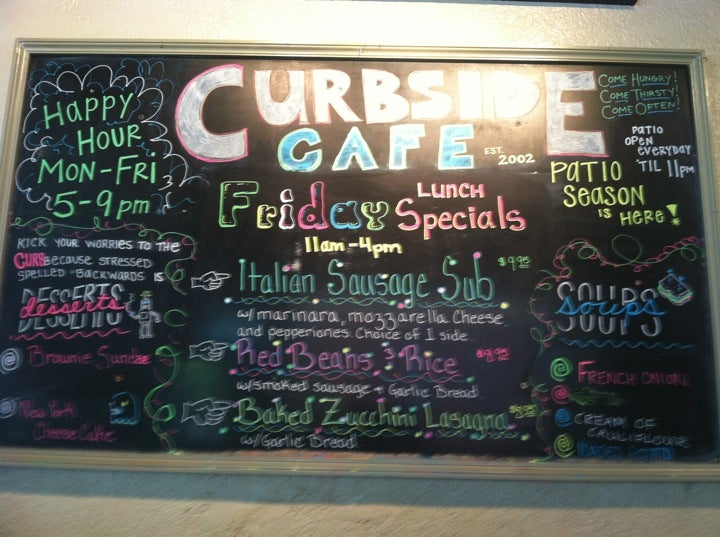 HAPPY
HOUR
MON-FRI
5-9pm
CURBSIDE
CAFE
EST.
2002
COME HUNGRY!
COME THIRSTY!
COME OFTEN!
PATIO
OPEN
EVERYDAY
'TIL 11pm
PATIO
SEASON
IS HERE!
Friday LUNCH
Specials
11am-4pm
KICK YOUR WORRIES TO THE
CURB BECAUSE STRESSED
SPELLED BACKWARDS IS
DESSERTS
desserts
@ Brownie Sundae
@ New York
Cheese Cake
Italian Sausage Sub $9.95
w/ marinara, mozzarella Cheese
and pepperiones. Choice of 1 side.
Red Beans & Rice $8.95
w/smoked sausage + Garlic Bread
Baked Zucchini Lasagna
w/Garlic Bread
SOUPS
soups
@ FRENCH ONION
CREAM OF
CAULIFLOWER
@ LOADED POTATO